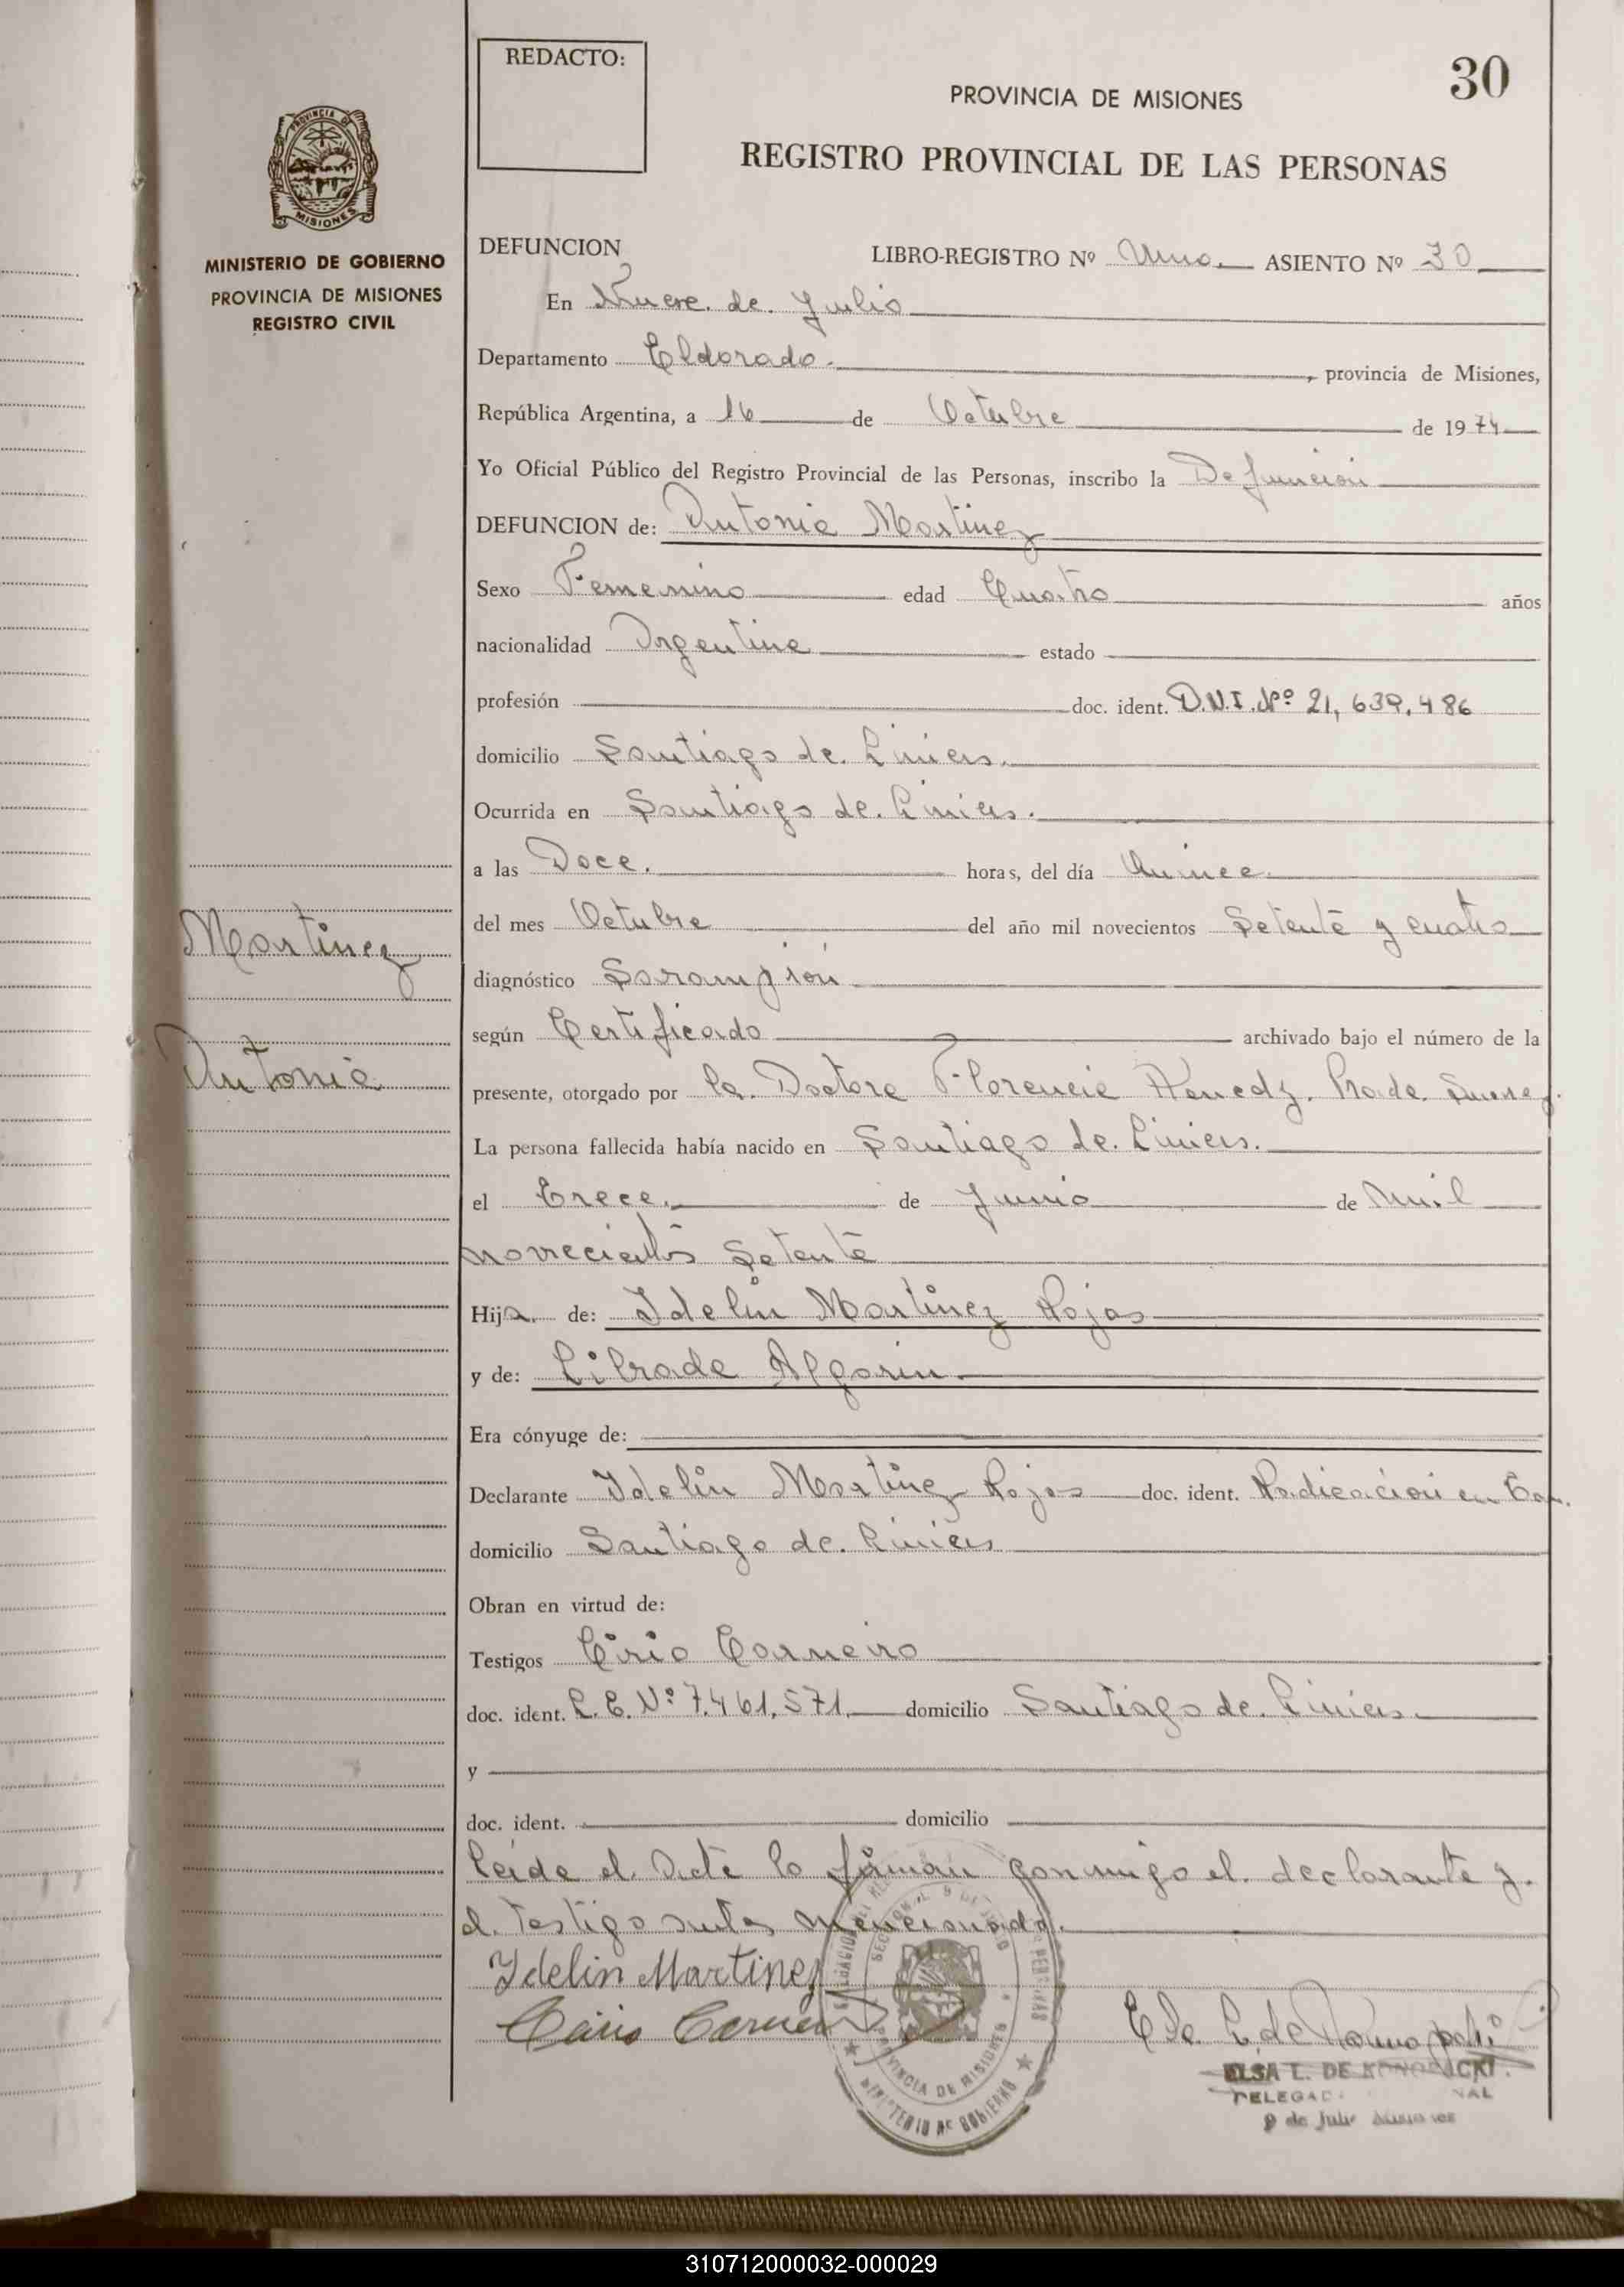 REDACTO:
30
PROVINCIA DE MISIONES
REGISTRO PROVINCIAL DE LAS PERSONAS
PROVINCIA DE
MISIONES
MINISTERIO DE GOBIERNO
PROVINCIA DE MISIONES
REGISTRO CIVIL
DEFUNCION LIBRO-REGISTRO Nº Uno. ASIENTO Nº 30
En Nueve de Julio
Departamento Eldorado. , provincia de Misiones,
República Argentina, a 16 de Octubre de 1974
Yo Oficial Público del Registro Provincial de las Personas, inscribo la Defunción
DEFUNCION de: Antonia Martinez
Sexo Femenino edad Cuatro años
nacionalidad Argentina estado
profesión doc. ident. D.N.I. Nº 21,639,486
domicilio Santiago de Liniers.
Ocurrida en Santiago de Liniers.
a las Doce. horas, del día Quince.
del mes Octubre del año mil novecientos Setenta y cuatro
Martinez
diagnóstico Sarampión
según Certificado archivado bajo el número de la
Antonia
presente, otorgado por la Doctora Florencia
La persona fallecida había nacido en Santiago de Liniers.
el Trece. de Junio de mil
novecientos Setenta
Hija de: Idelin Martinez Rojas
y de: Librada Algorin
Era cónyuge de:
Declarante Idelin Martinez Rojas doc. ident. Radicación en
domicilio Santiago de Liniers
Obran en virtud de:
Testigos Cirio Carneiro
doc. ident. L.E. Nº 7.461.571 domicilio Santiago de Liniers.
y
doc. ident. domicilio
Leida el Acta lo firman conmigo el declarante y
el testigo antes mencionado.
Idelin Martinez
PROVINCIA DE MISIONES
MINISTERIO DE GOBIERNO
ELSA L. DE
9 de Julio Misiones
310712000032-000029